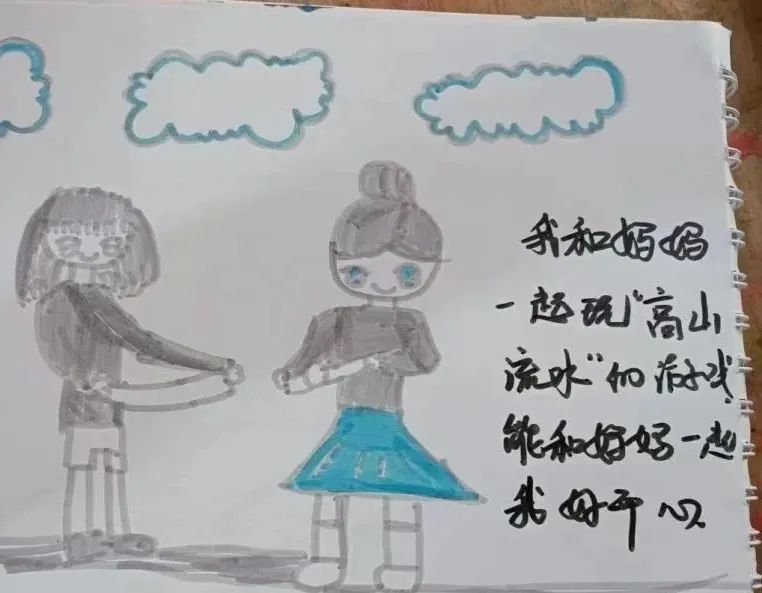 我和妈妈
一起玩"高山
流水"的游戏
能和妈妈一起
我好开心